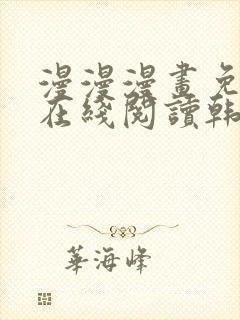 漫漫漫畫免
在綫閱讀韩
華海峰